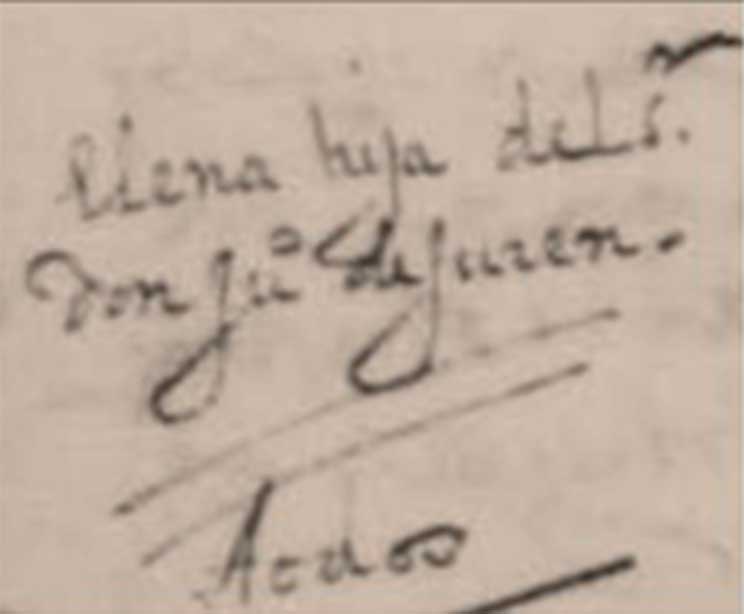 Elena hija del Sr.
Don Ju° de Juren.
Aodos